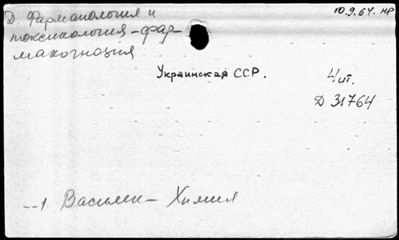 Д Фармакология и
токсикология - фар-
макогнозия
10.9.64. нр
Украинская ССР.
4/ит.
Д 31764
--1. Василек - Химия